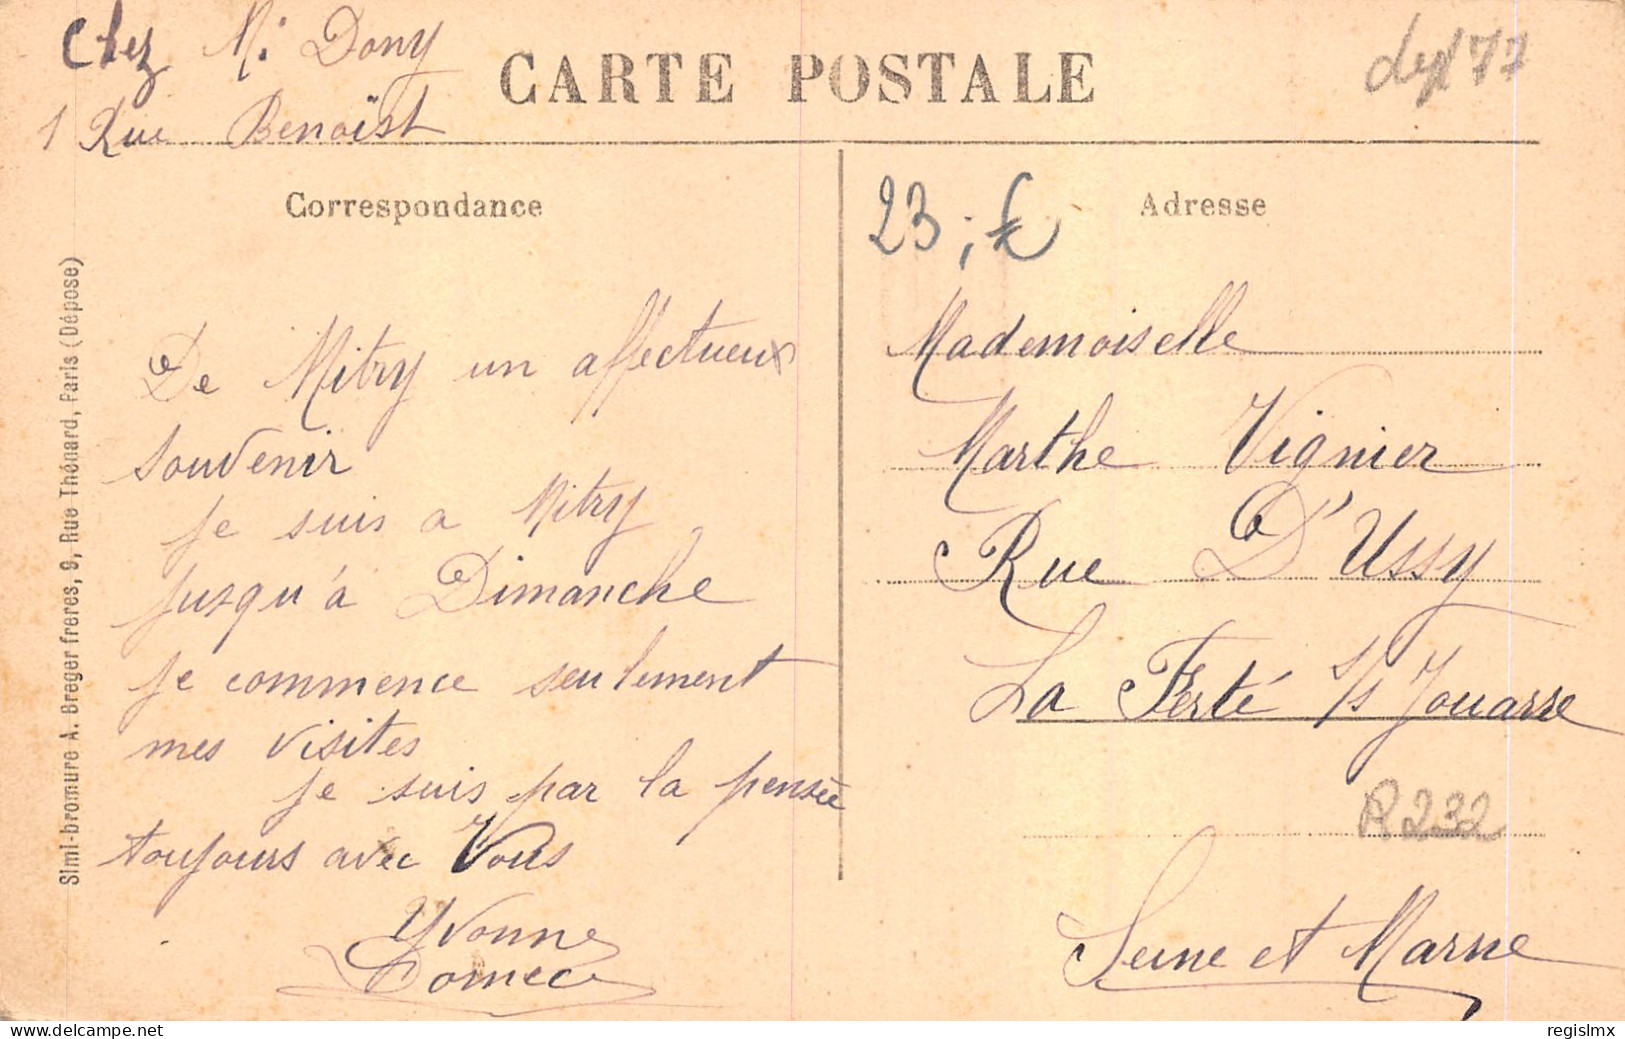 Chez M. Dony
1 Rue Benoist
CARTE POSTALE
dept 77
Correspondance
23,€
Adresse
Simi-bromure A. Breger frères, 9, Rue Thénard, Paris (Déposé)
De Mitry un affectueux
souvenir
je suis a Mitry
jusqu'à Dimanche
je commence seulement
mes visites
je suis par la pensée
toujours avec Vous
Yvonne
Mademoiselle
Marthe Vignier
Rue D'Ussy
La Ferté s/s Jouarre
R232
Seine et Marne
www.delcampe.net
regislmx